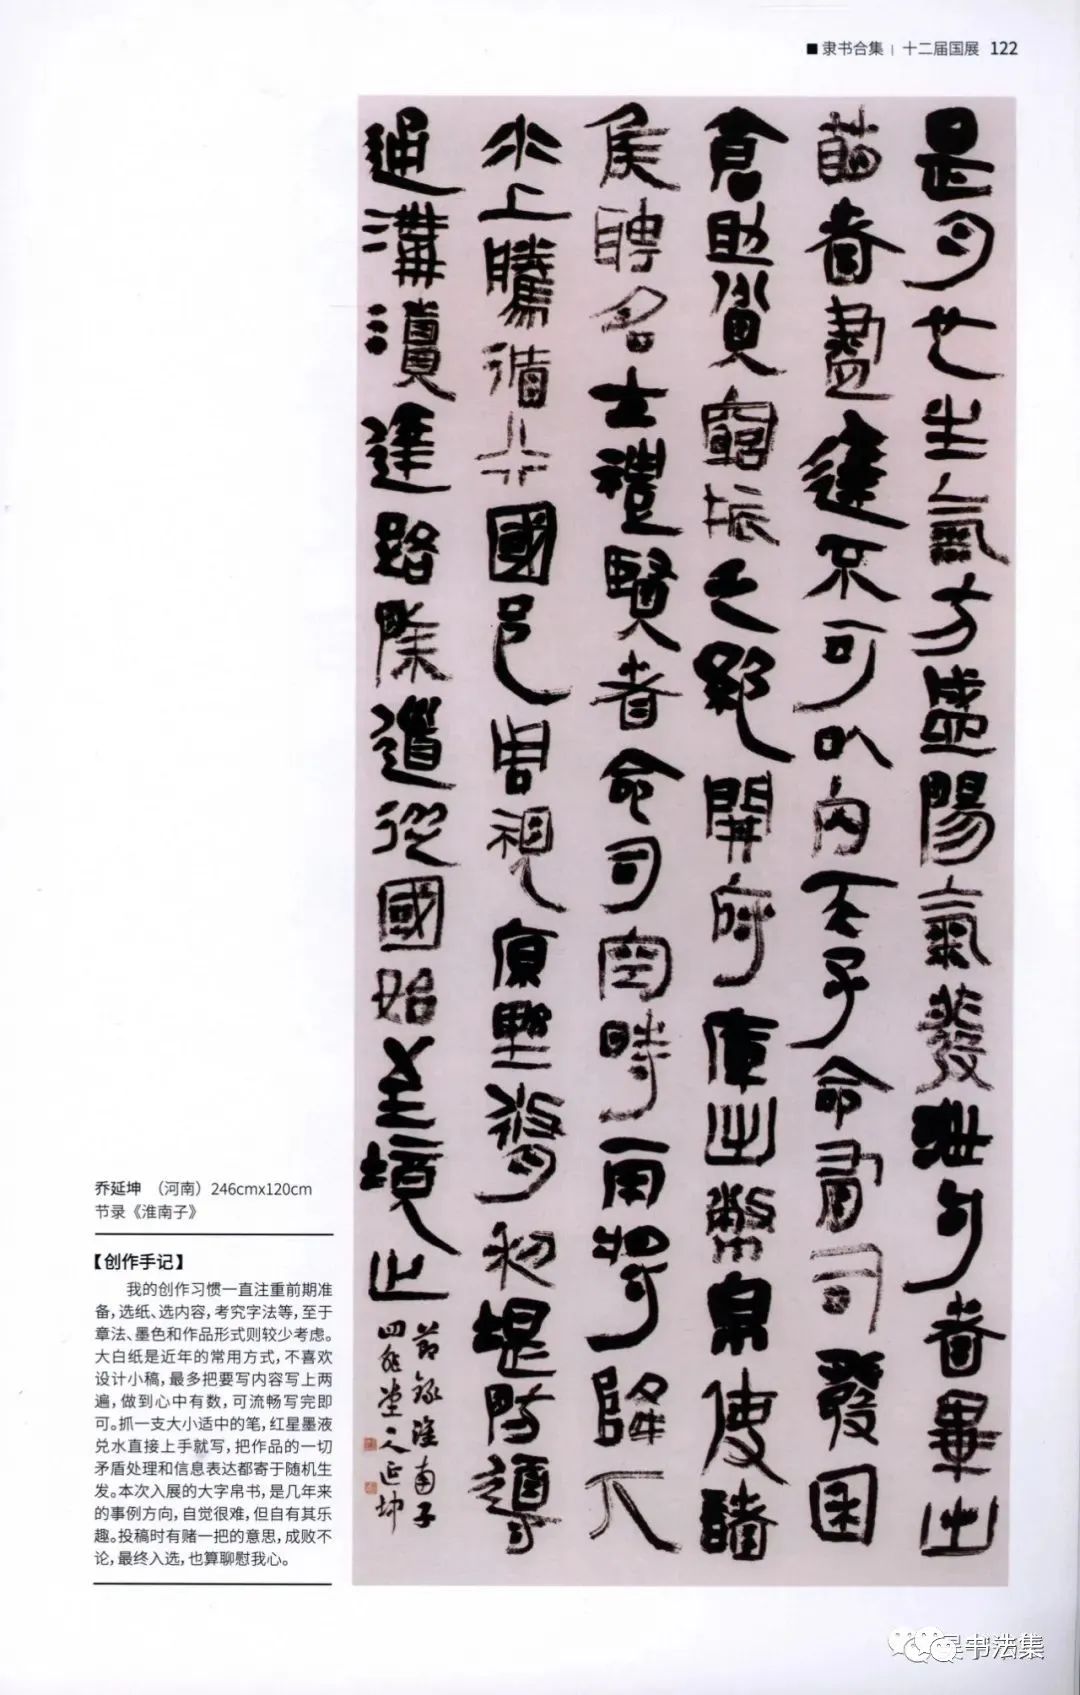 ■隶书合集 | 十二届国展 122
是月也生氣方盛陽氣發泄句者畢出
萌者盡達不可以内天子命有司發囷
倉助貧窮振乏絶開府庫出幣帛使諸
侯聘名士禮賢者命司空時雨将降下
水上騰循行國邑周視原野修利堤防導
通溝瀆達路除道從國始至境止
節録淮南子
四堂人延坤
乔延坤 （河南）246cmx120cm
节录《淮南子》
【创作手记】
我的创作习惯一直注重前期准
备，选纸、选内容，考究字法等，至于
章法、墨色和作品形式则较少考虑。
大白纸是近年的常用方式，不喜欢
设计小稿，最多把要写内容写上两
遍，做到心中有数，可流畅写完即
可。抓一支大小适中的笔，红星墨液
兑水直接上手就写，把作品的一切
矛盾处理和信息表达都寄于随机生
发。本次入展的大字帛书，是几年来
的事例方向，自觉很难，但自有其乐
趣。投稿时有赌一把的意思，成败不
论，最终入选，也算聊慰我心。
书法集